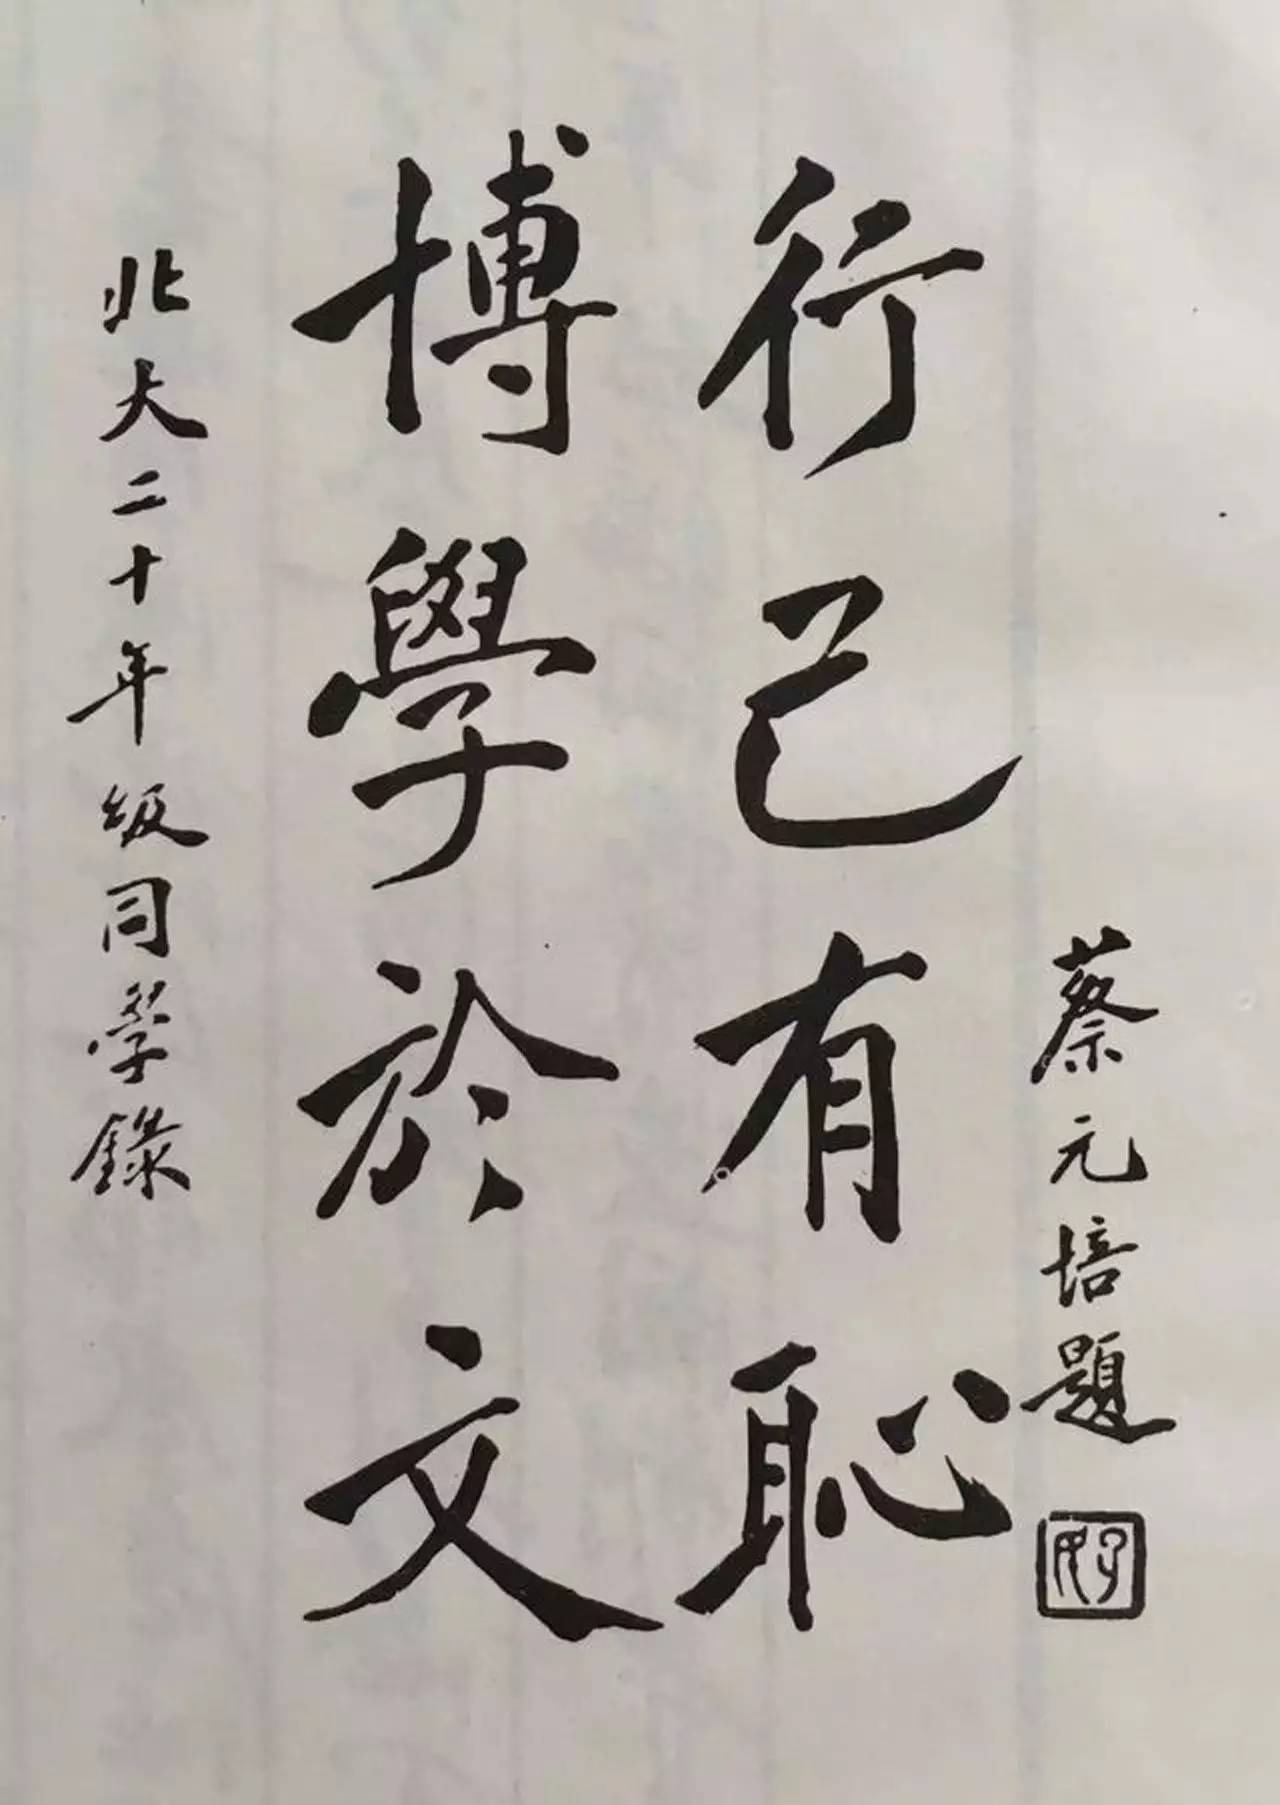 北大二十年級同學錄
博學於文
行己有恥
蔡元培題
孑民